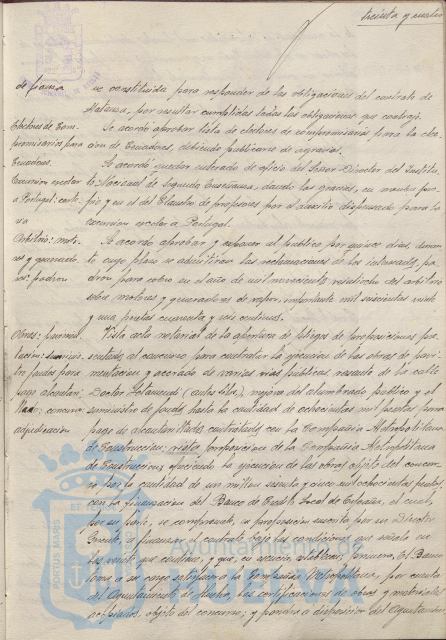 treinta y cuatro
de fianza
ne constituida para responder de las obligaciones del contrato de
Matanza, por resultar cumplidas todas las obligaciones que contrajo.
Electores de Com-
Se acordó aprobar lista de electores de compromisarios para la elec-
promisarios para
ción de Senadores, debiendo publicarse de agravios.
Senadores.
Se acordó quedar enterado de oficio del Señor Director del Institu-
Excursión escolar
to Nacional de Segunda Enseñanza, dando las gracias, en nombre pro-
a Portugal: carta
pio y en el del Claustro de profesores por el auxilio dispensado para la
excursión escolar a Portugal.
Arbitrio: moto-
Se acordó aprobar y exponer al público por quince días, duran-
res y generado-
te cuyo plazo se admitirán las reclamaciones de los interesados, pa-
res: padrón
drón para cobro en el año de mil novecientos veintiocho del arbitrio
sobre motores y generadores de vapor, importante mil
y una pesetas cincuenta y seis céntimos.
Obras: pavimen-
Vista acta notarial de la apertura de pliegos de proposiciones pre-
tación: suminis-
sentadas al concurso para contratar la ejecución de las obras de pavi-
tro fondos para
mentación y acerado de varias vías públicas, ensanche de la calle
pago alcantari-
Doctor Letamendi (antes Isla), mejora del alumbrado público y el
llado: concurso
suministro de fondos hasta la cantidad de ochocientas mil pesetas para
adjudicación
pago de alcantarillado, contratado con la Compañía Metropolitana
de Construcción; vista proposición de la Compañía Metropolitana
de Construcción ofreciendo la ejecución de las obras objeto del concur-
so por la cantidad de un millón sesenta y cinco mil ochocientas pesetas,
con la financiación del Banco de Crédito Local de España, el cual,
por su parte, se compromete, en proposición suscrita por su Director
Gerente, a financiar el contrato bajo las condiciones que señala en
las bases que constan, y que, en esencia, establecen: primero, El Banco
toma a su cargo satisfacer a la Compañía Metropolitana, por cuenta
del Ayuntamiento de Huelva, las certificaciones de obras y materiales
acopiados, objeto del concurso; y pondrá a disposición del Ayuntamien-
PORTUS MARIS
ET
Ayuntamiento